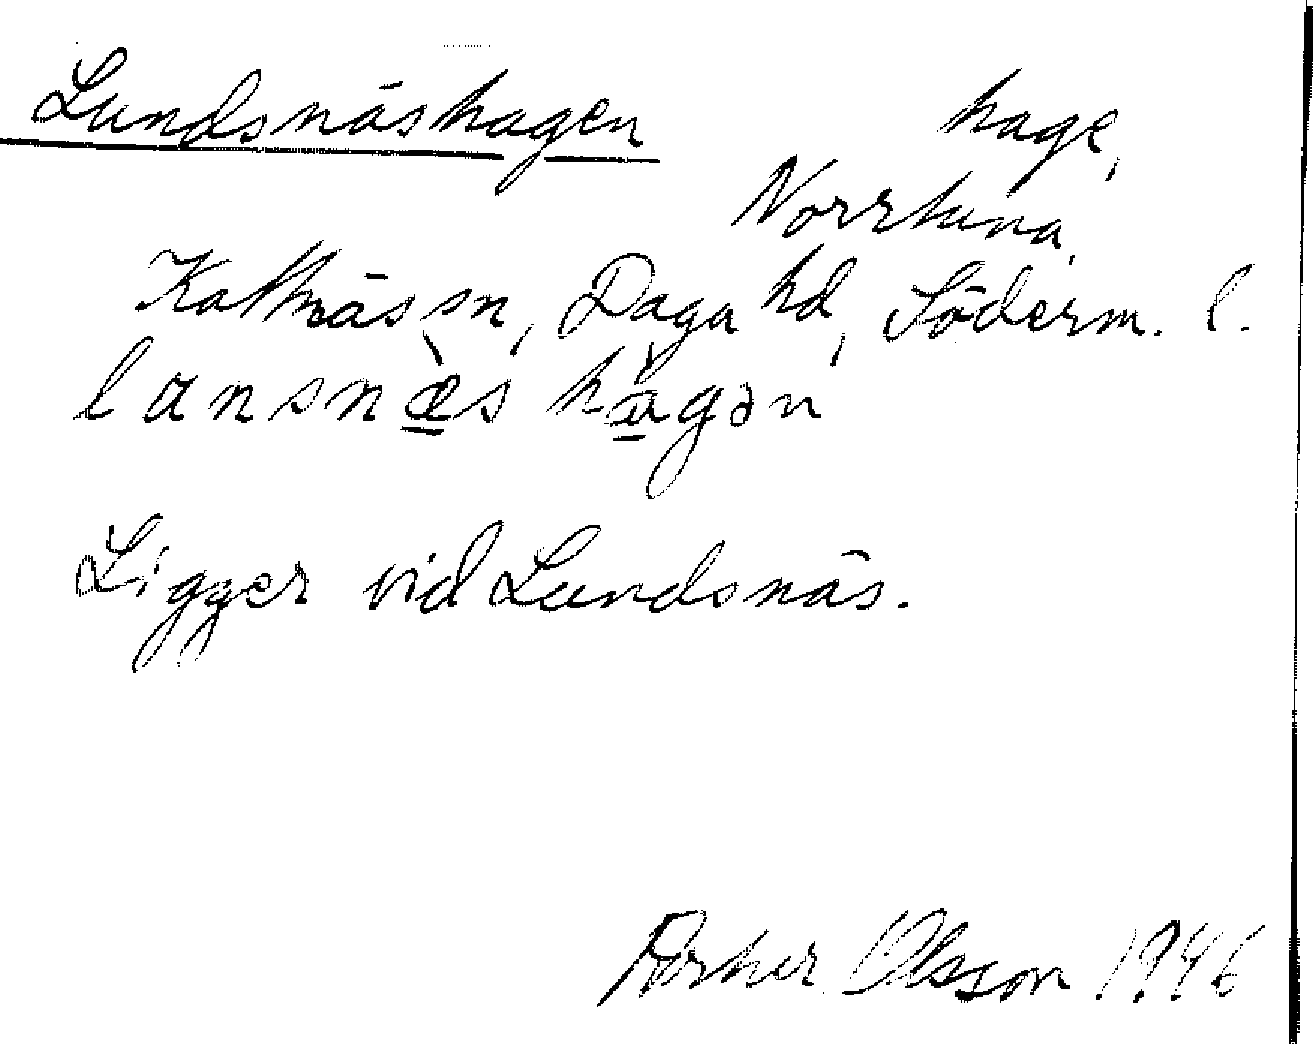 Lundsnäshagen hage,
Norrtuna,
Kattnäs sn, Daga hd, Söderm. l.
lansnæ̀s hàgən
Ligger vid Lundsnäs.
Olsson 1946